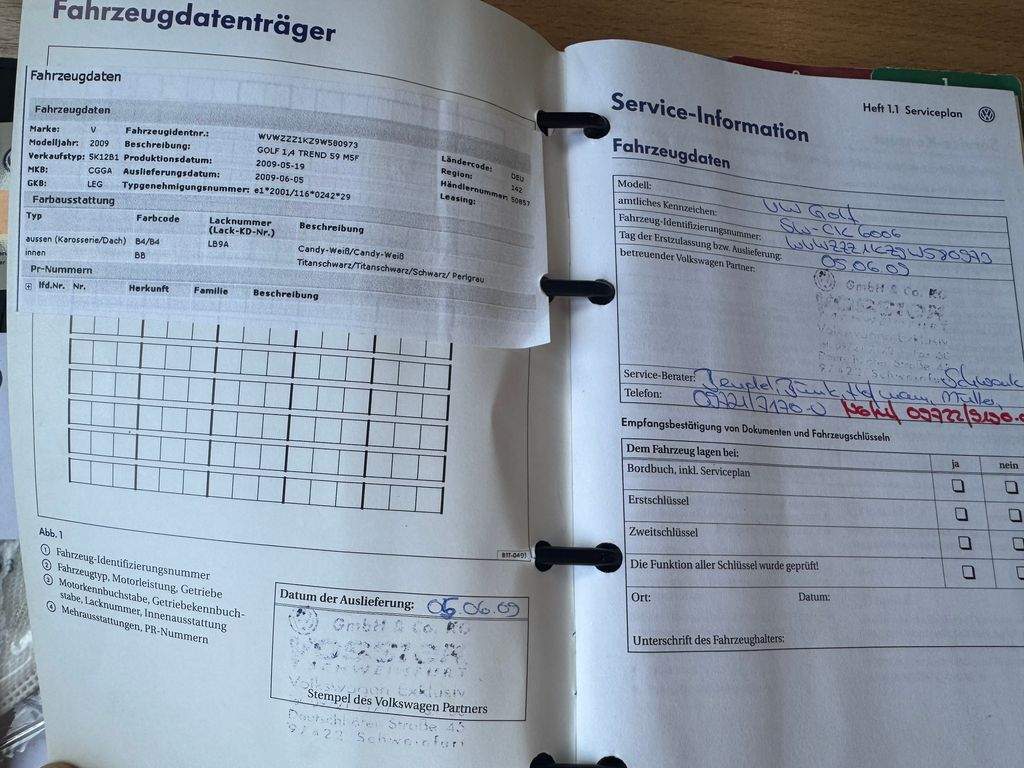 Fahrzeugdatenträger
Fahrzeugdaten
Fahrzeugdaten
Marke: V Fahrzeugidentnr.: WVWZZZ1KZ9W580973
Modelljahr: 2009 Beschreibung: GOLF 1,4 TREND 59 M5F Ländercode: DEU
Verkaufstyp: 5K12B1 Produktionsdatum: 2009-05-19 Region: 142
MKB: CGGA Auslieferungsdatum: 2009-06-05 Händlernummer: 50857
GKB: LEG Typgenehmigungsnummer: e1*2001/116*0242*29 Leasing:
Farbausstattung
Typ Farbcode Lacknummer (Lack-KD-Nr.) Beschreibung
aussen (Karosserie/Dach) B4/B4 LB9A Candy-Weiß/Candy-Weiß
innen BB Titanschwarz/Titanschwarz/Schwarz/ Perlgrau
Pr-Nummern
lfd.Nr. Nr. Herkunft Familie Beschreibung
B1T-0491
Abb. 1
① Fahrzeug-Identifizierungsnummer
② Fahrzeugtyp, Motorleistung, Getriebe
③ Motorkennbuchstabe, Getriebekennbuch-
stabe, Lacknummer, Innenausstattung
④ Mehrausstattungen, PR-Nummern
Datum der Auslieferung: 05.06.09
GmbH & Co. KG
Volkswagen Exklusiv
Stempel des Volkswagen Partners
97422 Schweinfurt
Heft 1.1 Serviceplan
Service-Information
Fahrzeugdaten
Modell: VW Golf
amtliches Kennzeichen: SW-CK 6006
Fahrzeug-Identifizierungsnummer: WVWZZZ1KZ9W580973
Tag der Erstzulassung bzw. Auslieferung: 05.06.09
betreuender Volkswagen Partner:
GmbH & Co. KG
97422 Schweinfurt
Service-Berater:
Telefon: 09721/7170-0
Empfangsbestätigung von Dokumenten und Fahrzeugschlüsseln
Dem Fahrzeug lagen bei: ja nein
Bordbuch, inkl. Serviceplan
Erstschlüssel
Zweitschlüssel
Die Funktion aller Schlüssel wurde geprüft!
Ort: Datum:
Unterschrift des Fahrzeughalters: